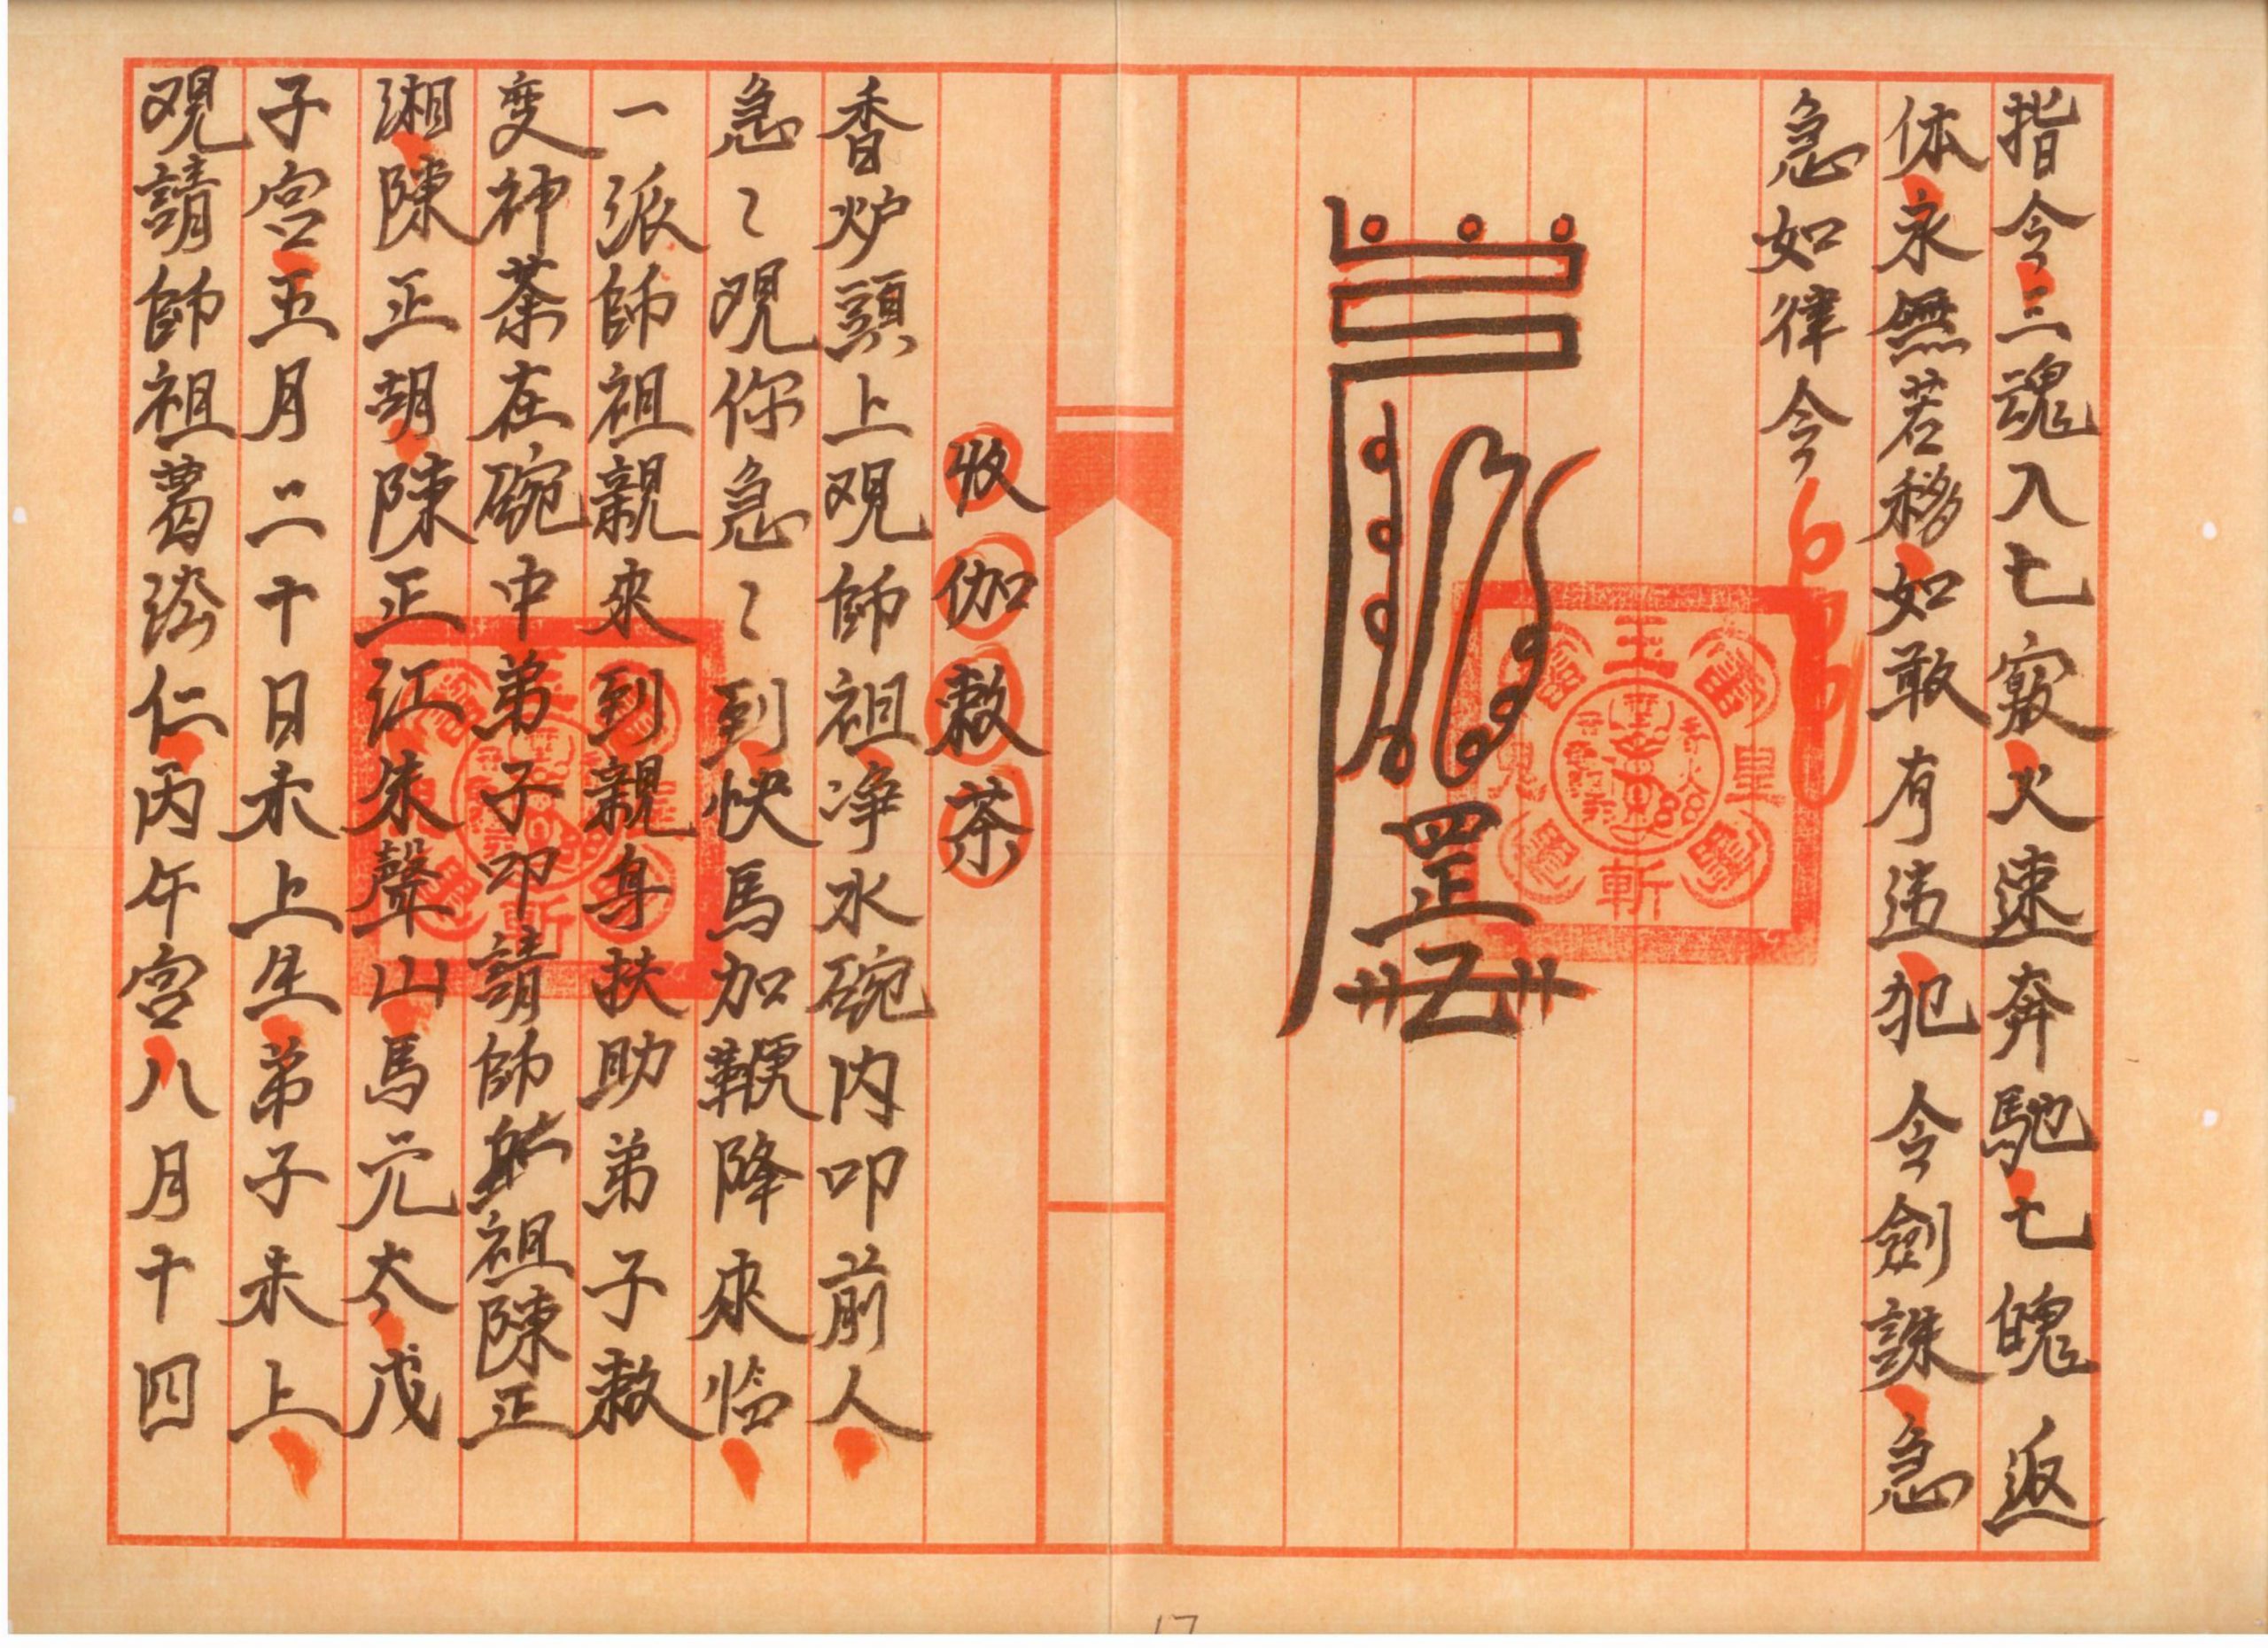 指令三魂入七竅火速奔馳七魄返
体永無若移如敢有违犯令劍誅急
急如律令
罡
收伽敕茶
香炉頭上观師祖净水碗内叩前人
急〻观你急〻到快馬加鞭降来临
一派師祖親來到親身扶助弟子敕
变神茶在碗中弟子叩請師祖陳正
湘陳正胡陳正江朱聲山馬元太戊
子宫五月二十日未上生弟子未上
观請師祖葛法仁丙午宫八月十四
玉皇
斬鬼
17